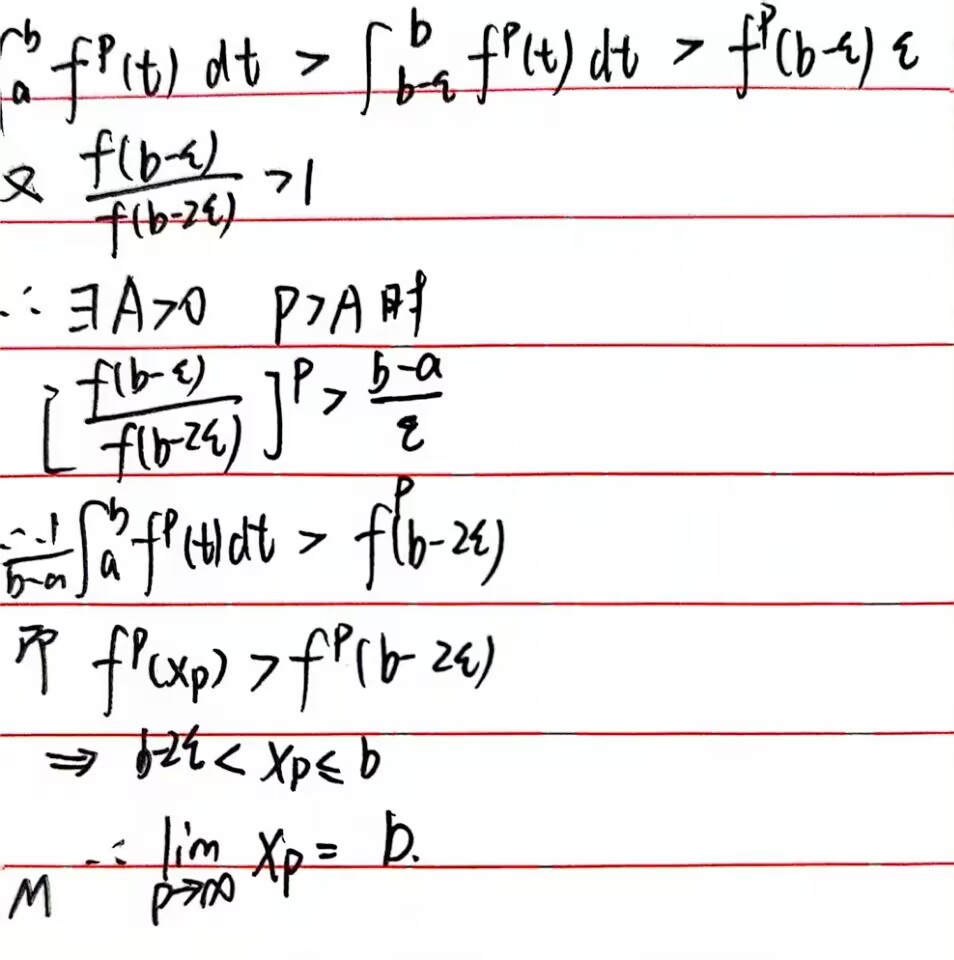 ∫_a^b f^p(t) dt > ∫_{b-ε}^b f^p(t) dt > f^p(b-ε) ε
又 f(b-ε)/f(b-2ε) >1
∴ ∃A>0 p>A时
[f(b-ε)/f(b-2ε)]^p > (b-a)/ε
∴ 1/(b-a) ∫_a^b f^p(t)dt > f^p(b-2ε)
即 f^p(x_p) > f^p(b-2ε)
⇒ b-2ε < x_p ≤ b
∴ lim_{p→∞} x_p = b.
M